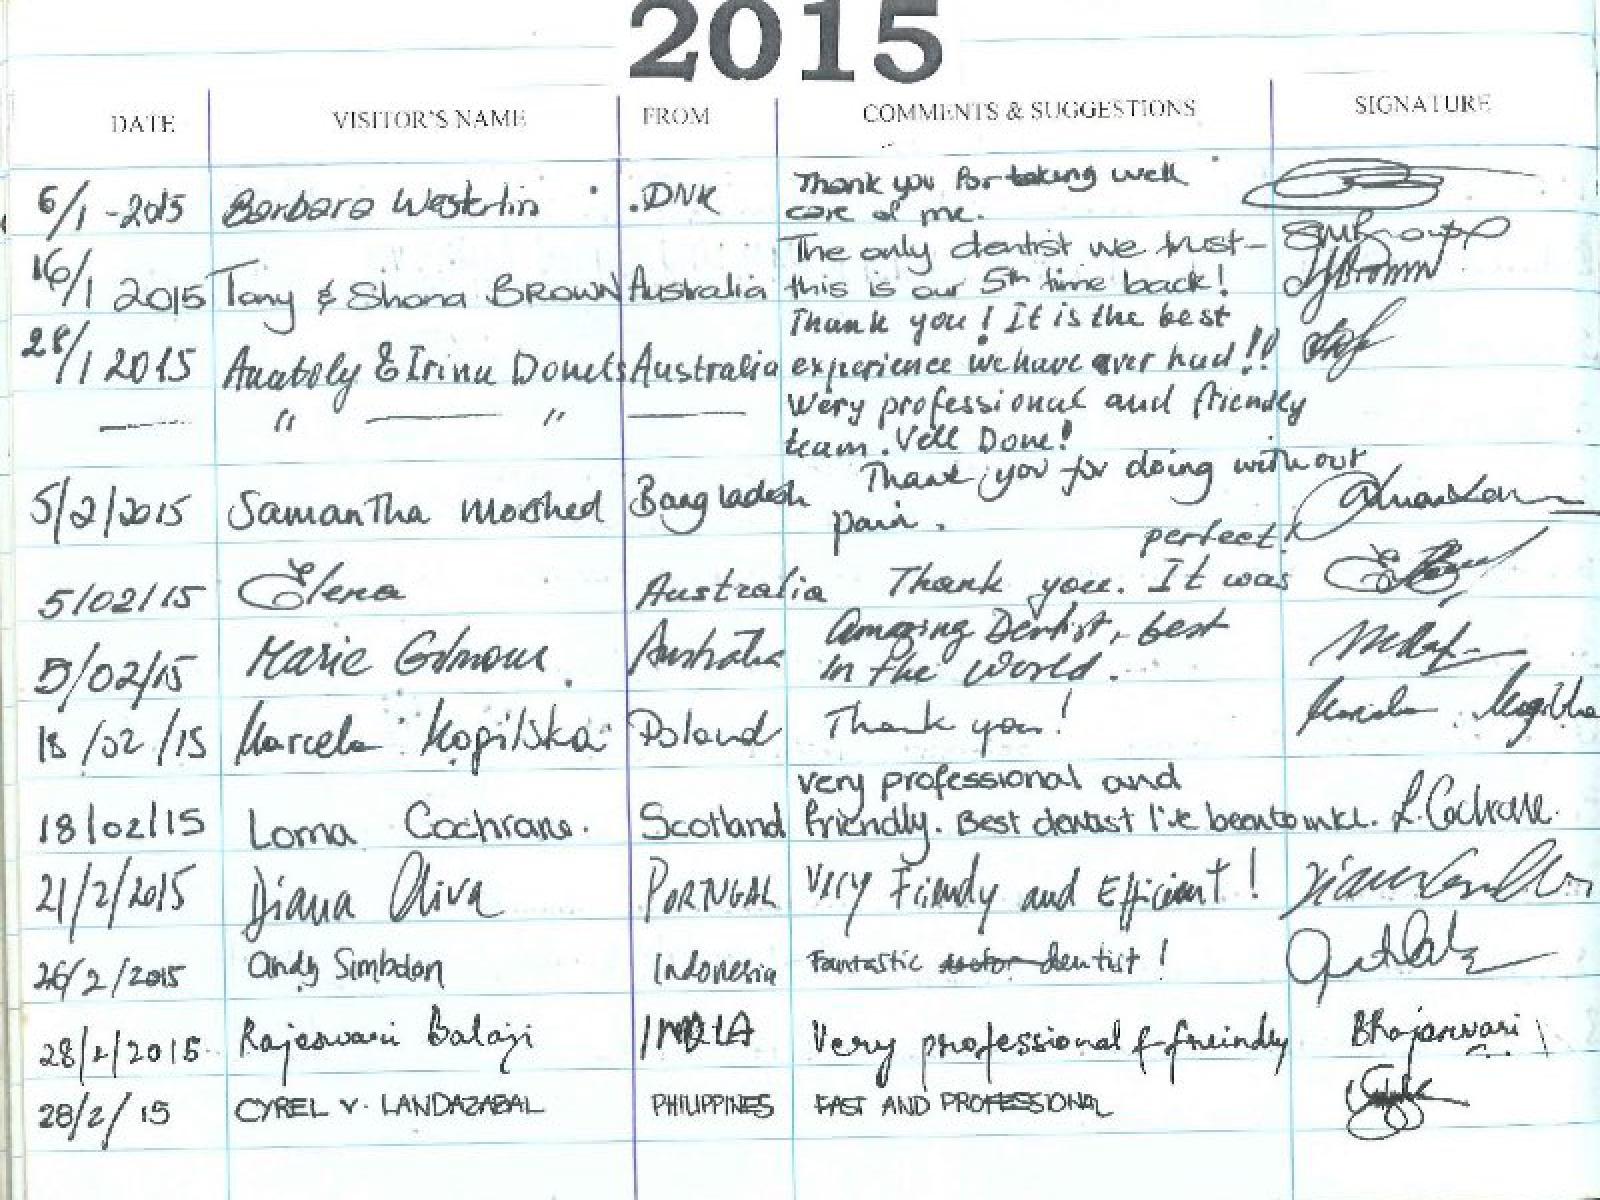 2015
DATE VISITOR'S NAME FROM COMMENTS & SUGGESTIONS SIGNATURE
6/1-2015 Barbara Westerlin DNK Thank you for taking well
care of me.
16/1 2015 Tony & Shona BROWN Australia The only dentist we trust-
this is our 5th time back!
28/1 2015 Anatoly & Irina Donets Australia Thank you! It is the best
experience we have ever had!!
" " Wery professional and friendly
team. Vell Done!
5/2/2015 Samantha Morshed Bangladesh Thank you for doing without
pain.
5/02/15 Elena Australia Thank you. It was
perfect!
5/02/15 Marie Gilmour Australia Amazing Dentist, best
in the world.
18/02/15 Marcela Poland Thank you!
18/02/15 Lorna Cochrane. Scotland very professional and
friendly. Best dentist I've been to L. Cochrane.
21/2/2015 Diana Oliva PORTUGAL Very Friendly and Efficient!
26/2/2015 Andy Indonesia Fantastic dentist!
28/2/2015 Rajeswari Balaji INDIA Very professional & freindly
28/2/15 CYREL V. LANDAZABAL PHILIPPINES FAST AND PROFESSIONAL